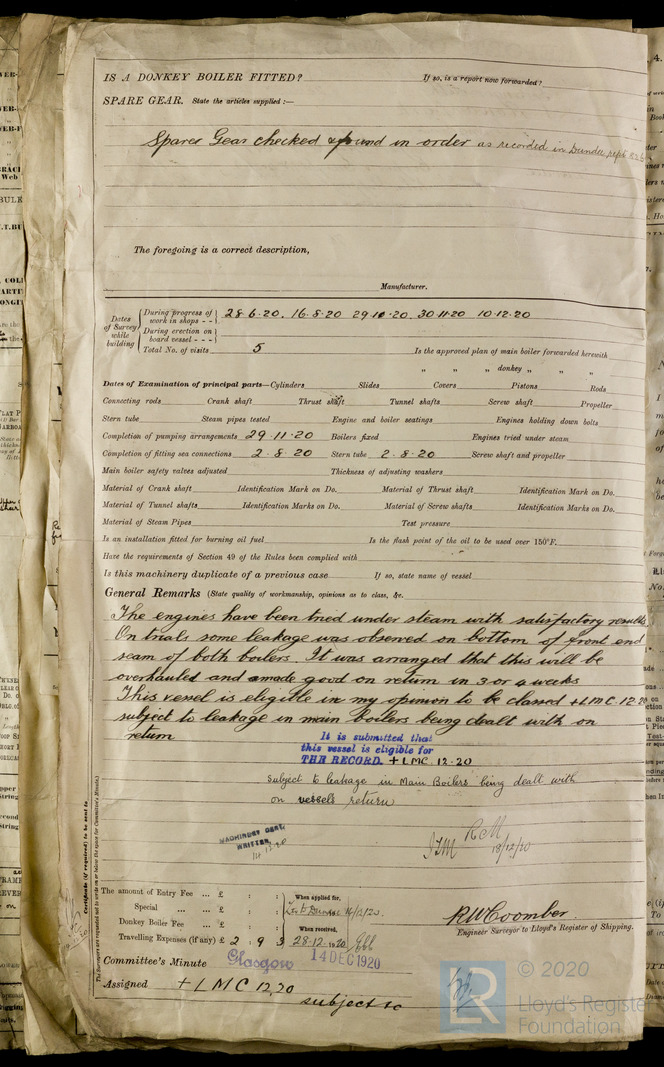 IS A DONKEY BOILER FITTED? If so, is a report now forwarded?
SPARE GEAR. State the articles supplied :—
Spare Gear checked & found in order as recorded in Dundee
The foregoing is a correct description,
Manufacturer.
Dates of Survey while building
During progress of work in shops - - 28.6.20. 16.8.20 29.10.20. 30.11.20 10.12.20
During erection on board vessel - - -
Total No. of visits 5 Is the approved plan of main boiler forwarded herewith
" " " donkey " " "
Dates of Examination of principal parts—Cylinders Slides Covers Pistons Rods
Connecting rods Crank shaft Thrust shaft Tunnel shafts Screw shaft Propeller
Stern tube Steam pipes tested Engine and boiler seatings Engines holding down bolts
Completion of pumping arrangements 29.11.20 Boilers fixed Engines tried under steam
Completion of fitting sea connections 2.8.20 Stern tube 2.8.20 Screw shaft and propeller
Main boiler safety valves adjusted Thickness of adjusting washers
Material of Crank shaft Identification Mark on Do. Material of Thrust shaft Identification Mark on Do.
Material of Tunnel shafts Identification Marks on Do. Material of Screw shafts Identification Marks on Do.
Material of Steam Pipes Test pressure
Is an installation fitted for burning oil fuel Is the flash point of the oil to be used over 150°F.
Have the requirements of Section 49 of the Rules been complied with
Is this machinery duplicate of a previous case If so, state name of vessel
General Remarks (State quality of workmanship, opinions as to class, &c.
The engines have been tried under steam with satisfactory results
On trials some leakage was observed on bottom of front end
seam of both boilers. It was arranged that this will be
overhauled and made good on return in 3 or 4 weeks
This vessel is eligible in my opinion to be classed + LMC. 12.20
subject to leakage in main boilers being dealt with on
return
It is submitted that
this vessel is eligible for
THE RECORD. + LMC. 12.20
Subject to leakage in Main Boilers being dealt with
on vessel's return
MACHINERY CERT.
WRITTEN.
14.12.20
18/12/20
Certificate (if required) to be sent to.
The Surveyors are requested not to write on or below the space for Committee's Minute.
The amount of Entry Fee ... £ : : When applied for,
Special ... ... £ : :
Donkey Boiler Fee ... £ : : When received,
Travelling Expenses (if any) £ 2 . 9 . 3 28.12.1920
RW Coomber
Engineer Surveyor to Lloyd's Register of Shipping.
Committee's Minute Glasgow 14 DEC 1920
Assigned + L M C 12,20
subject to
LR
© 2020
Lloyd's Register
Foundation